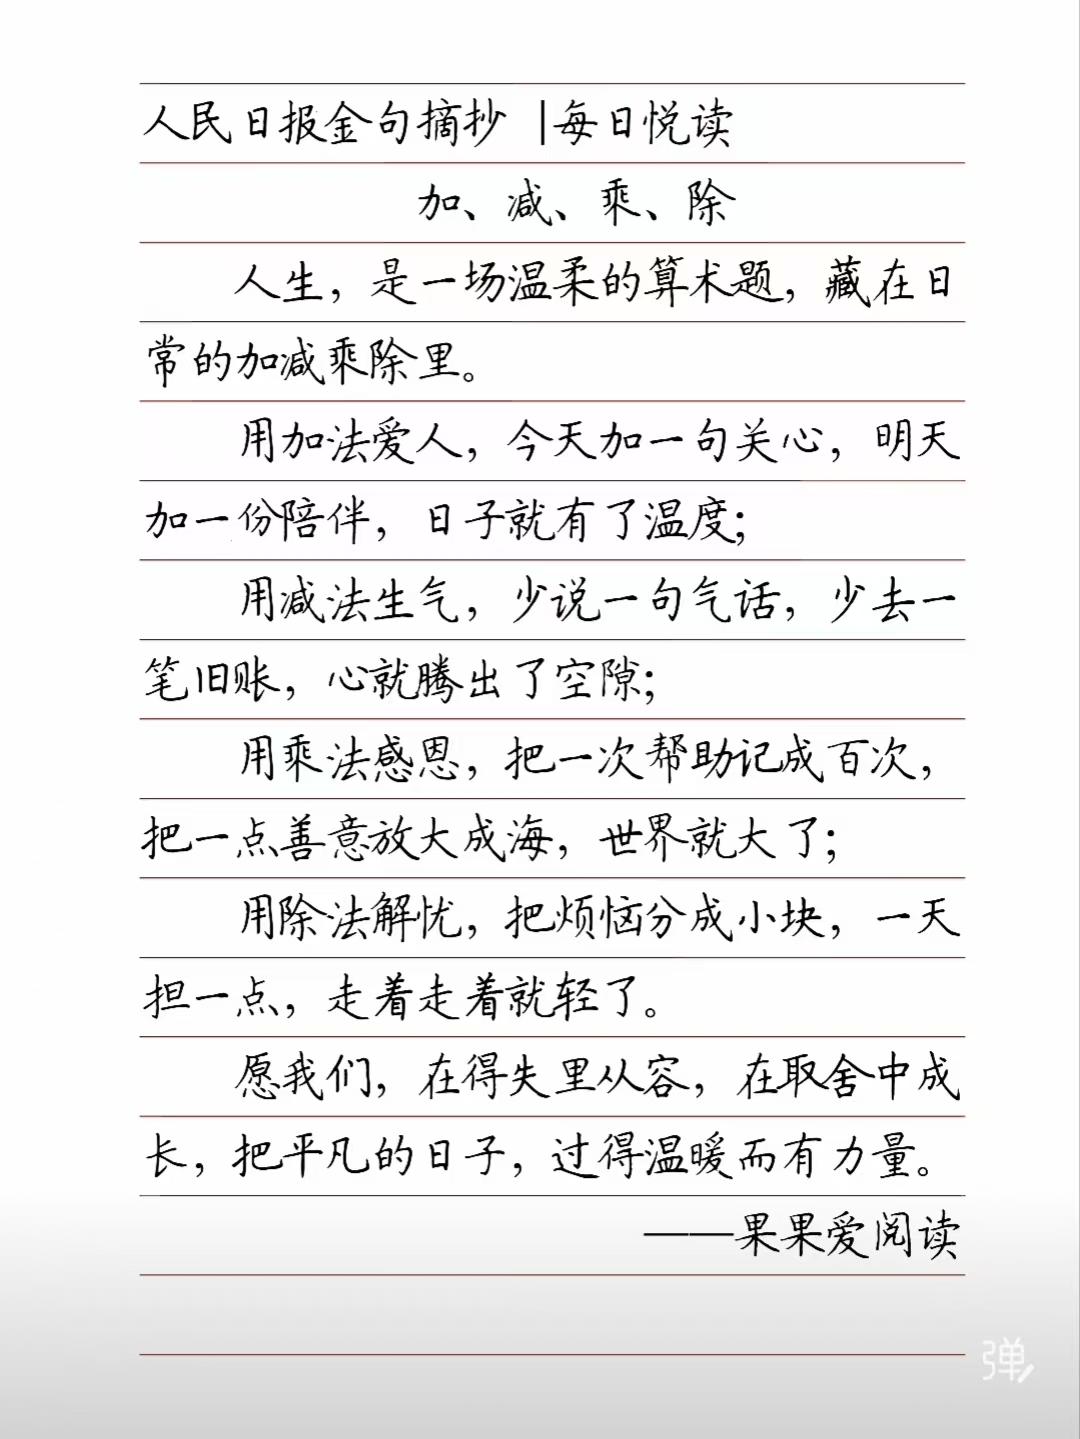 人民日报金句摘抄 |每日悦读
加、减、乘、除
人生，是一场温柔的算术题，藏在日
常的加减乘除里。
用加法爱人，今天加一句关心，明天
加一份陪伴，日子就有了温度；
用减法生气，少说一句气话，少去一
笔旧账，心就腾出了空隙；
用乘法感恩，把一次帮助记成百次，
把一点善意放大成海，世界就大了；
用除法解忧，把烦恼分成小块，一天
担一点，走着走着就轻了。
愿我们，在得失里从容，在取舍中成
长，把平凡的日子，过得温暖而有力量。
——果果爱阅读
弹